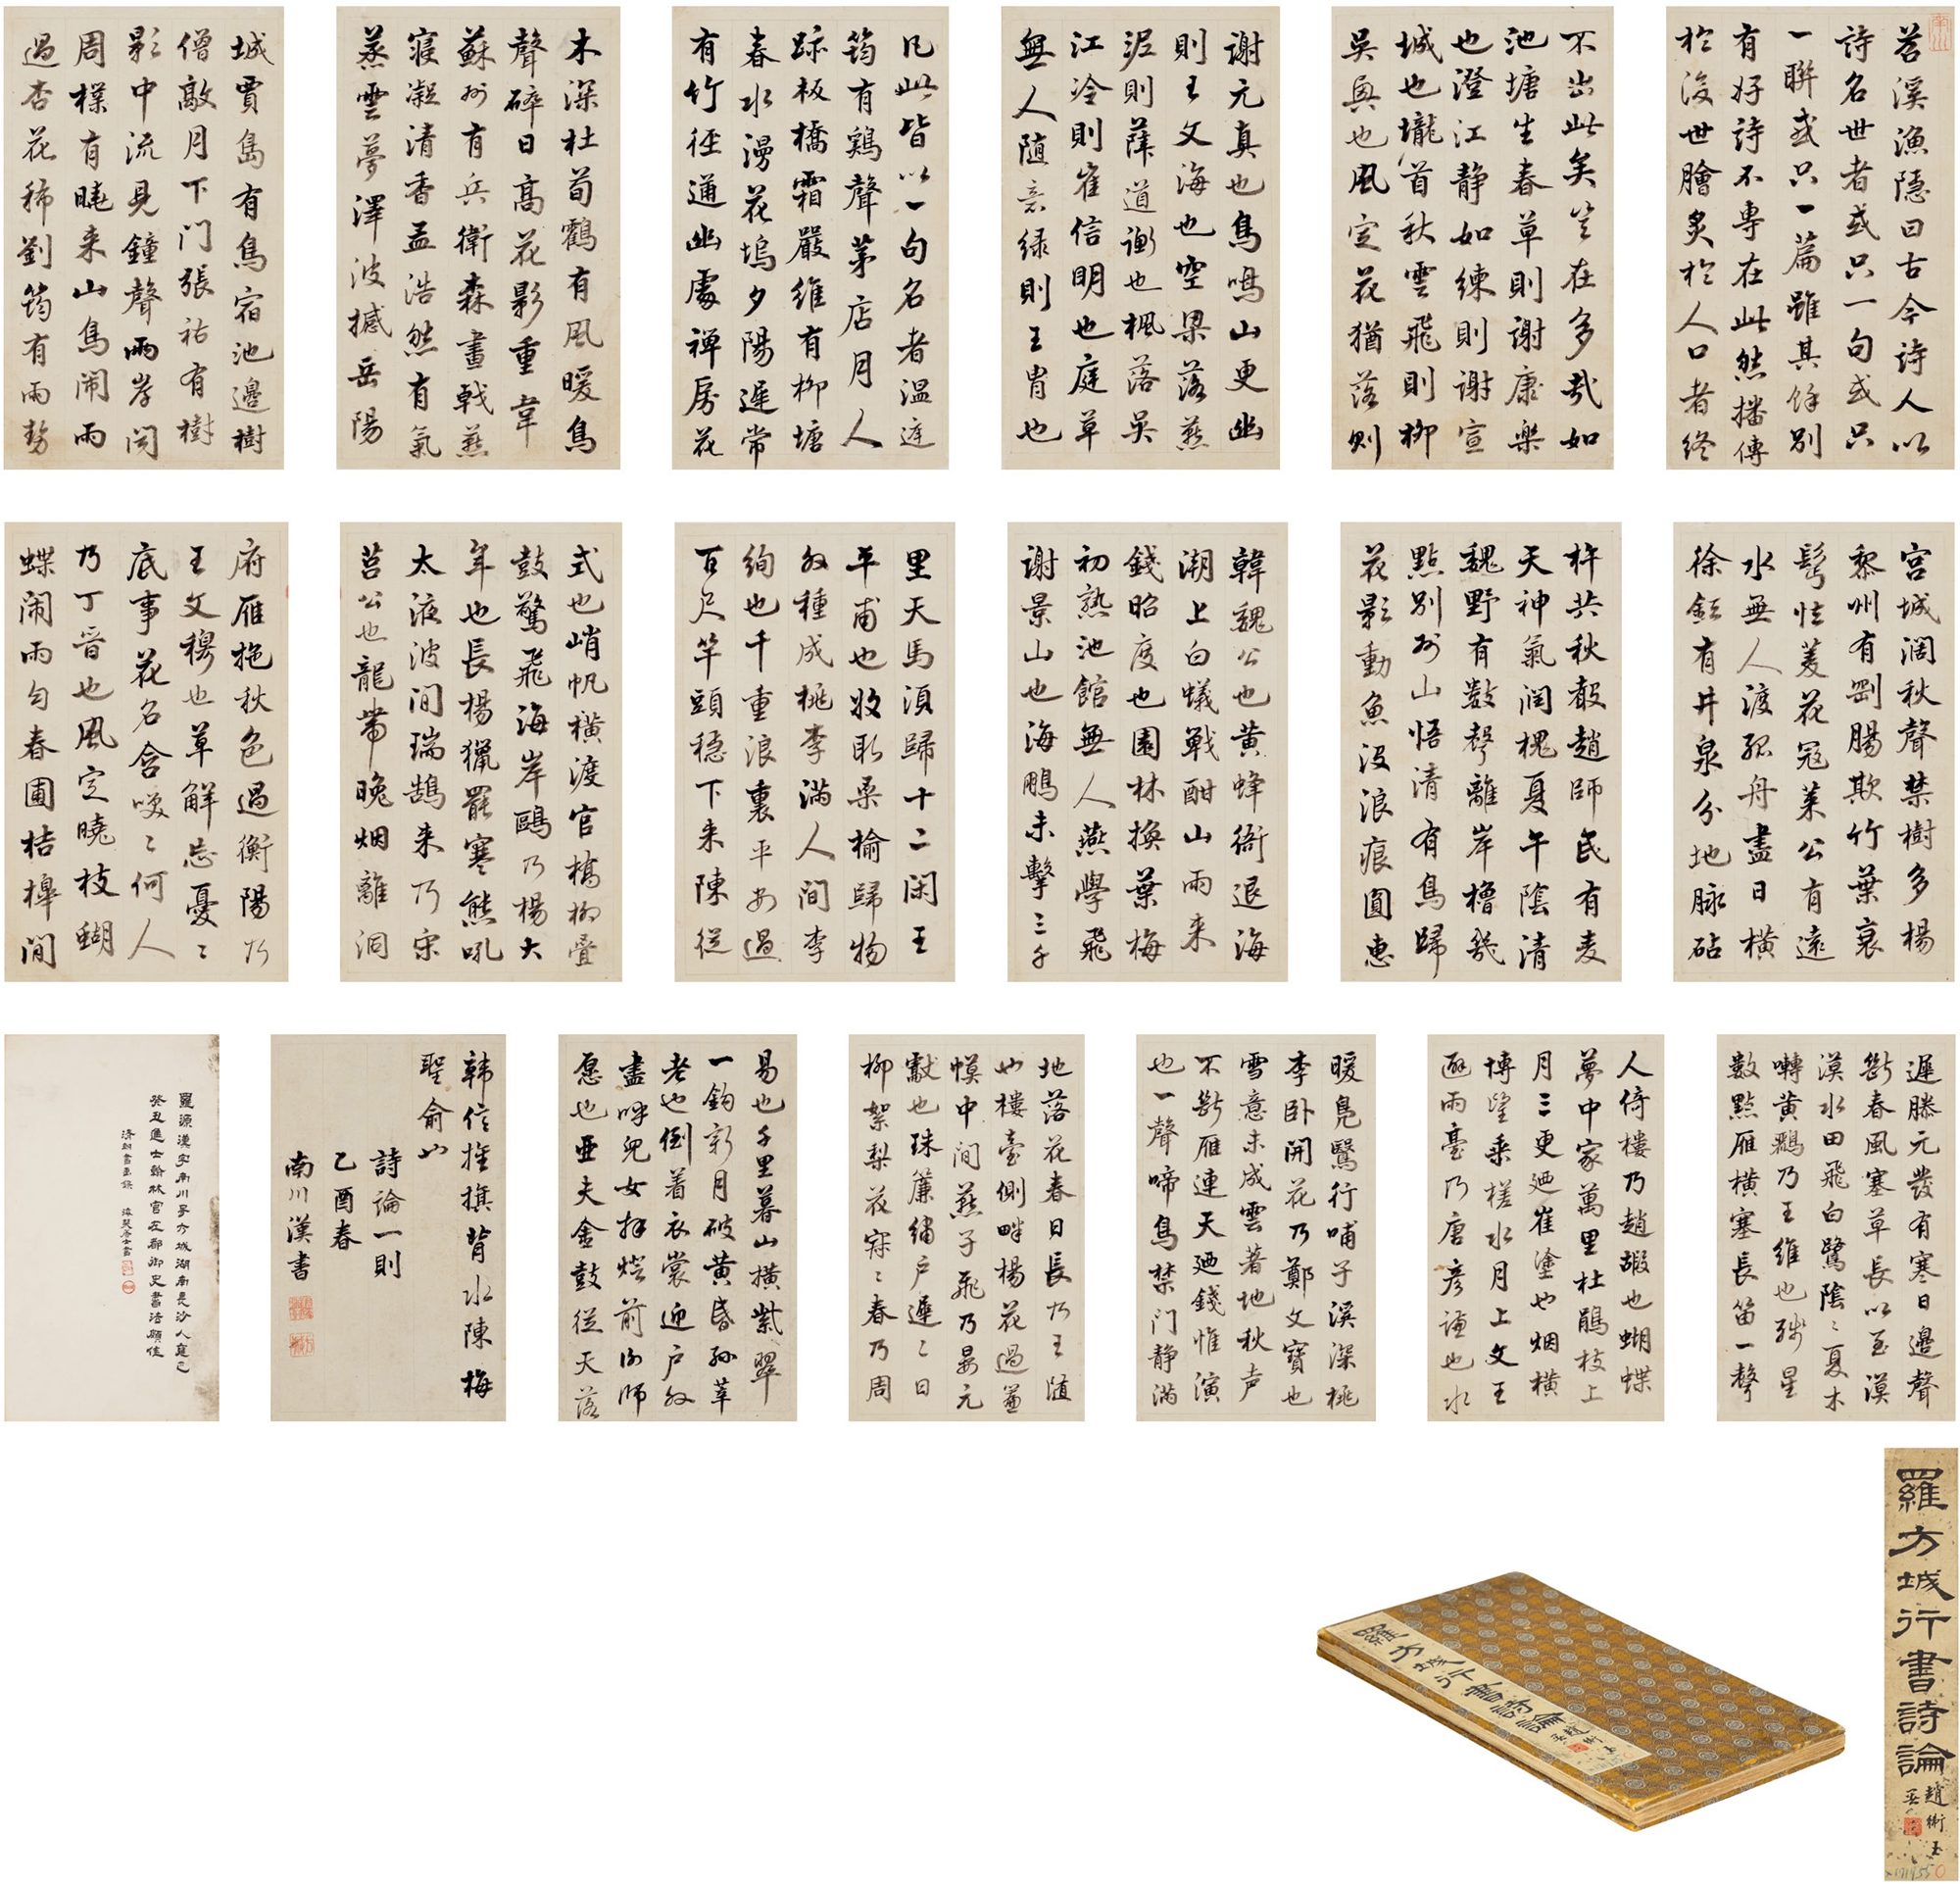 苕溪漁隱曰古今詩人以
詩名世者或只一句或只
一聯或只一篇雖其餘別
有好詩不專在此然播傳
於後世膾炙於人口者終
不出此矣豈在多哉如
池塘生春草則謝康樂
也澄江靜如練則謝宣
城也壠首秋雲飛則柳
吳興也風定花猶落則
謝元真也鳥鳴山更幽
則王文海也空梁落燕
泥則薛道衡也楓落吳
江冷則崔信明也庭草
無人隨意綠則王胄也
凡此皆以一句名者溫庭
筠有鷄聲茅店月人
跡板橋霜嚴維有柳塘
春水漫花塢夕陽遲常
有竹徑通幽處禪房花
木深杜荀鶴有風暖鳥
聲碎日高花影重韋
蘇州有兵衛森畫戟燕
寢凝清香孟浩然有氣
蒸雲夢澤波撼岳陽
城賈島有鳥宿池邊樹
僧敲月下门張祜有樹
影中流見鐘聲兩岸闻
周樸有曉来山鳥闹雨
過杏花稀劉筠有雨勢
宮城闊秋聲禁樹多楊
黎州有剛腸欺竹葉衰
鬓怯菱花冠莱公有遠
水無人渡孤舟盡日橫
徐鉉有井泉分地脉砧
杵共秋聲趙師民有麦
天神氣润槐夏午陰清
魏野有數聲離岸櫓幾
點别州山悟清有鳥歸
花影動魚没浪痕圓惠
韓魏公也黄蜂衙退海
潮上白蟻戰酣山雨来
錢昭度也園林換葉梅
初熟池館無人燕學飛
謝景山也海鵬未擊三千
里天馬須歸十二闲王
平甫也收取桑榆歸物
外種成桃李滿人间李
絢也千重浪裏平安過
百尺竿頭穩下来陳從
式也峭帆橫渡官橋柳叠
鼓驚飛海岸鷗乃楊大
年也長楊獵罷寒熊吼
太液波间瑞鵠来乃宋
莒公也龍帶晚烟離洞
府雁拖秋色過衡陽乃
王文穆也草解忘憂憂
底事花名含笑笑何人
乃丁晋也風定曉枝蝴
蝶闹雨匀春圃桔橰閒
遲滕元發有寒日邊聲
斷春風塞草長以至漠
漠水田飛白鷺陰陰夏木
囀黄鸝乃王維也殘星
數點雁橫塞長笛一聲
人倚樓乃趙嘏也蝴蝶
夢中家萬里杜鵑枝上
月三更廼崔塗也烟橫
博望乘槎水月上文王
避雨臺乃唐彦謙也水
暖鳧鷖行哺子溪深桃
李卧開花乃鄭文寶也
雪意未成雲著地秋声
不斷雁連天廼錢惟演
也一聲啼鳥禁门靜滿
地落花春日長乃王隨
也樓臺側畔楊花過簾
幙中间燕子飛乃晏元
獻也珠簾繡户遲遲日
柳絮梨花寂寂春乃周
易也千里暮山橫紫翠
一鈎新月破黄昏孙莘
老也倒着衣裳迎户外
盡呼兒女拜燈前謝師
愿也亜夫金鼓從天落
韩信旌旗背水陳梅
聖俞也
詩論一則
乙酉春
南川漢書
羅源漢字南川号方城湖南長沙人雍正
癸丑進士翰林官左都御史書法顏佳
清朝書畫錄
羅方城行書詩論
羅方城行書詩論